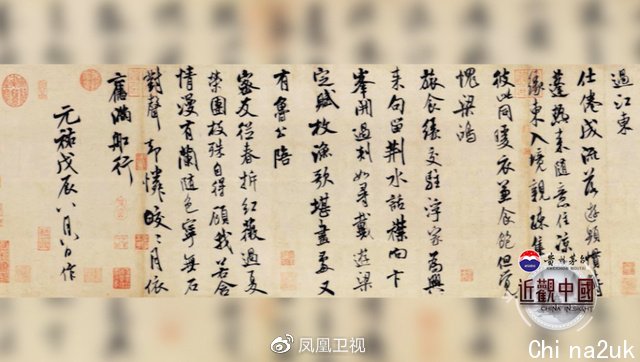 過江東
仕倦成流落遊頻慣轉
蓬熱来随意住涼
緣東入境親疎集
彼此同暖衣兼食飽但覺
愧梁鴻
旅食緣交駐浮家為興
来句留荆水話襟向卞
峯開過剡如尋戴遊梁
定賦枚漁歌堪畫處又
有魯公陪
密友從春拆紅薇過夏
榮團枝殊自得顧我若含
情漫有蘭随色寧無石
對聲却憐皎〻月依
舊滿船行
元祐戊辰八月八日作
近觀中國
CHINA IN SIGHT
凤凰卫视
Chi na2uk